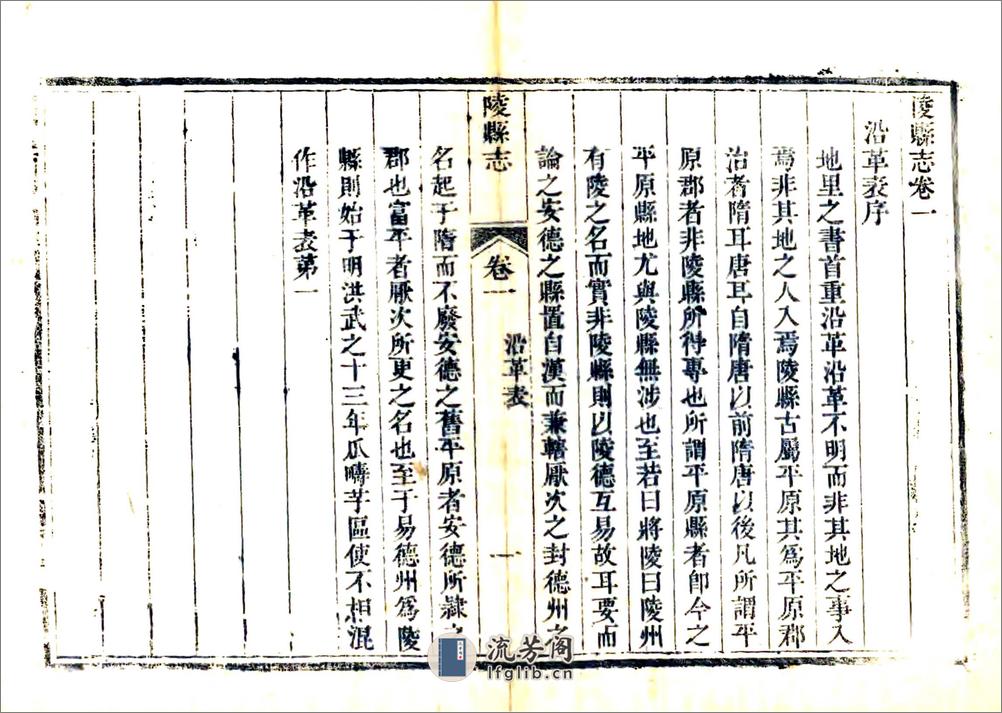 陵縣志卷一
沿革表序
地里之書首重沿革沿革不明而非其地之事入
焉非其地之人入焉陵縣古屬平原其為平原郡
治者隋耳唐耳自隋唐以前隋唐以後凡所謂平
原郡者非陵縣所得專也所謂平原縣者卽今之
平原縣地尤與陵縣無涉也至若曰將陵曰陵州
有陵之名而實非陵縣則以陵德互易故耳要而
論之安德之縣置自漢而兼轄厭次之封德州之
陵縣志
卷一
沿革表
一
名起于隋而不廢安德之舊平原者安德所隸之
郡也富平者厭次所更之名也至于易德州為陵
縣則始于明洪武之十三年瓜疇芋區使不相混
作沿革表第一
流芳閣
lfglib.cn